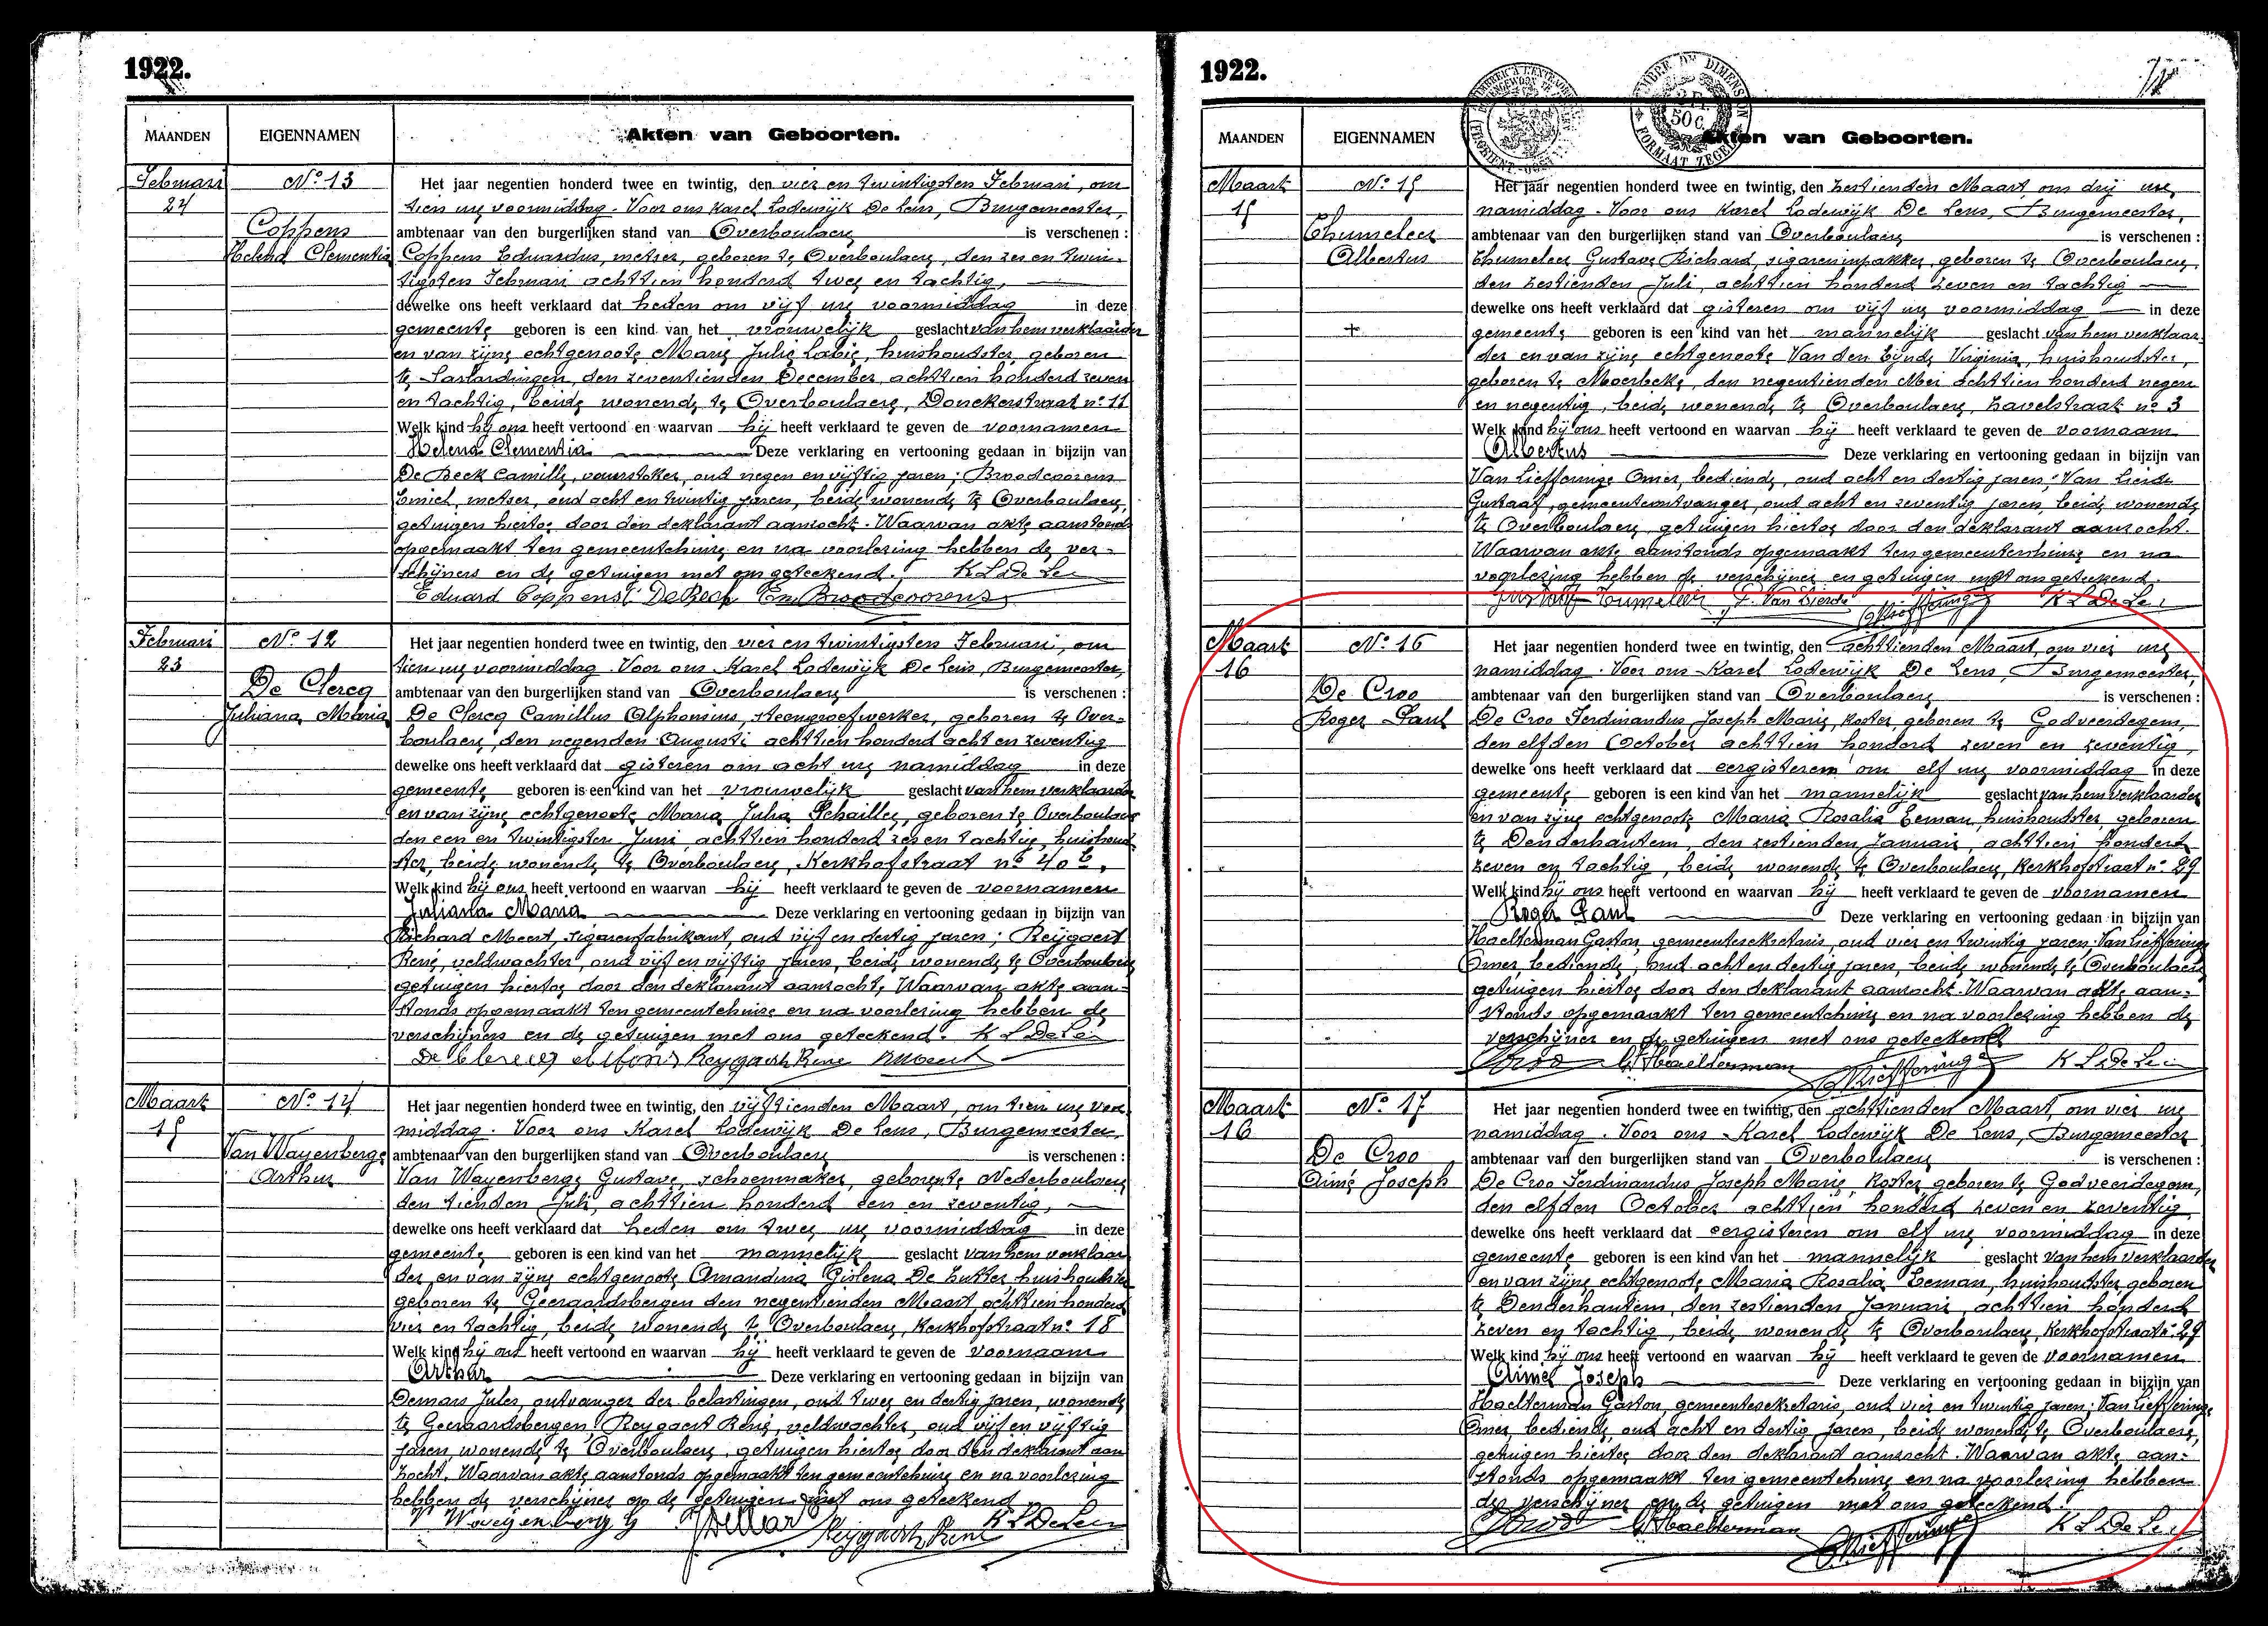 1922.
MAANDEN
EIGENNAMEN
Akten van Geboorten.
Februari
24
No 13
Coppens
Helena Clementia
Het jaar negentien honderd twee en twintig, den vier en twintigsten Februari, om
tien ure voormiddag. Voor ons Karel Lodewijk De Lens, Burgemeester,
ambtenaar van den burgerlijken stand van Overboulaere is verschenen :
Coppens Eduardus, metser, geboren te Overboulaere, den zes en twin-
tigsten Februari achttien honderd twee en tachtig,
dewelke ons heeft verklaard dat heden om vijf ure voormiddag in deze
gemeente geboren is een kind van het vrouwelijk geslacht van hem verklaarder
en van zijne echtgenoote Marie Julie Labie, huishoudster, geboren
te Sarlardingen, den zeventienden December, achttien honderd zeven
en tachtig, beide wonende te Overboulaere, Donckerstraat no 11
Welk kind hij ons heeft vertoond en waarvan hij heeft verklaard te geven de voornamen
Helena Clementia Deze verklaring en vertooning gedaan in bijzijn van
De Beck Camille, vuurstoker, oud negen en vijftig jaren; Broodcoorens
Emiel, metser, oud acht en twintig jaren, beide wonende te Overboulaere,
getuigen hiertoe door den deklarant aanzocht. Waarvan akte aanstonds
opgemaakt ten gemeentehuize en na voorlezing hebben de ver-
schijners en de getuigen met ons geteekend. K L De Lens
Eduard Coppens De Beck Em Broodcoorens
Februari
23
No 12
De Clercq
Juliana Maria
Het jaar negentien honderd twee en twintig, den vier en twintigsten Februari, om
tien ure voormiddag. Voor ons Karel Lodewijk De Lens, Burgemeester,
ambtenaar van den burgerlijken stand van Overboulaere is verschenen :
De Clercq Camillus Alphonsius, steengroefwerker, geboren te Over-
boulaere, den negenden Augusti achttien honderd acht en zeventig
dewelke ons heeft verklaard dat gisteren om acht ure namiddag in deze
gemeente geboren is een kind van het vrouwelijk geslacht van hem verklaarder
en van zijne echtgenoote Maria Julia Schaillee, geboren te Overboulaere
den een en twintigsten Juni, achttien honderd zes en tachtig, huishoud-
ster, beide wonende te Overboulaere, Kerkhofstraat no 40b,
Welk kind hij ons heeft vertoond en waarvan hij heeft verklaard te geven de voornamen
Juliana Maria Deze verklaring en vertooning gedaan in bijzijn van
Richard Meert, sigarenfabrikant, oud vijf en dertig jaren; Reijgaert
René, veldwachter, oud vijf en vijftig jaren, beide wonende te Overboulaere
getuigen hiertoe door den deklarant aanzocht, Waarvan akte aan-
stonds opgemaakt ten gemeentehuize en na voorlezing hebben de
verschijners en de getuigen met ons geteekend. K L De Lens
De Clercq Alfons Reygaert René R Meert
Maart
15
No 14
Van Wayenberge
Arthur
Het jaar negentien honderd twee en twintig, den vijftienden Maart, om tien ure voor
middag. Voor ons Karel Lodewijk De Lens, Burgemeester,
ambtenaar van den burgerlijken stand van Overboulaere is verschenen :
Van Wayenberge Gustave, schoenmaker, geboren te Nederboulaere
den tienden Juli, achttien honderd een en zeventig,
dewelke ons heeft verklaard dat heden om twee ure voormiddag in deze
gemeente geboren is een kind van het mannelijk geslacht van hem verklaar
der en van zijne echtgenoote Amandina Gislena De Lutter huishoudster
geboren te Geeraardsbergen den negentienden Maart, achttien honderd
vier en tachtig, beide wonende te Overboulaere, Kerkhofstraat no 18
Welk kind hij ons heeft vertoond en waarvan hij heeft verklaard te geven de voornaam
Arthur Deze verklaring en vertooning gedaan in bijzijn van
Demars Jules, ontvanger der belastingen, oud twee en dertig jaren, wonende
te Geeraardsbergen; Reygaert René, veldwachter, oud vijf en vijftig
jaren, wonende te Overboulaere, getuigen hiertoe door den deklarant aan
zocht. Waarvan akte aanstonds opgemaakt ten gemeentehuize en na voorlezing
hebben de verschijner en de getuigen met ons geteekend
V Wayenberg G Reijgaert René K L De Lens
1922.
MAANDEN
EIGENNAMEN
Akten van Geboorten.
Maart
15
No 15
Thumeleer
Albertus
+
Het jaar negentien honderd twee en twintig, den zestienden Maart om drij ure
namiddag. Voor ons Karel Lodewijk De Lens, Burgemeester,
ambtenaar van den burgerlijken stand van Overboulaere is verschenen :
Thumeleer Gustave Richard, sigareninpakker, geboren te Overboulaere,
den zestienden Juli, achttien honderd zeven en tachtig
dewelke ons heeft verklaard dat gisteren om vijf ure voormiddag in deze
gemeente geboren is een kind van het mannelijk geslacht van hem verklaar-
der en van zijne echtgenoote Van den Eijnde Virginia, huishoudster,
geboren te Moerbeke, den negentienden Mei achttien honderd negen
en negentig, beide wonende te Overboulaere, Gavelstraat no 3
Welk kind hij ons heeft vertoond en waarvan hij heeft verklaard te geven de voornaam
Albertus Deze verklaring en vertooning gedaan in bijzijn van
Van Liefferinge Omer, bediende, oud acht en dertig jaren; Van Lierde
Gustaaf, gemeenteontvanger, oud acht en zeventig jaren, beide wonende
te Overboulaere, getuigen hiertoe door den deklarant aanzocht.
Waarvan akte aanstonds opgemaakt ten gemeentenhuize en na
voorlezing hebben de verschijner en getuigen met ons geteekend.
Gustaaf Tumeleir G. Van Lierde O Liefferinge K L De Lens
Maart
16
No 16
De Croo
Roger Paul
Het jaar negentien honderd twee en twintig, den achttienden Maart, om vier ure
namiddag. Voor ons Karel Lodewijk De Lens, Burgemeester,
ambtenaar van den burgerlijken stand van Overboulaere is verschenen :
De Croo Ferdinandus Joseph Marie, koster geboren te Godveerdegem,
den elfden October achttien honderd zeven en zeventig,
dewelke ons heeft verklaard dat eergisteren om elf ure voormiddag in deze
gemeente geboren is een kind van het mannelijk geslacht van hem verklaarder
en van zijne echtgenoote Maria Rosalia Eeman, huishoudster, geboren
te Denderhautem, den zestienden Januari, achttien honderd
zeven en tachtig, beide wonende te Overboulaere, Kerkhofstraat no 29
Welk kind hij ons heeft vertoond en waarvan hij heeft verklaard te geven de voornamen
Roger Paul Deze verklaring en vertooning gedaan in bijzijn van
Haelterman Gaston, gemeentesekretaris, oud vier en twintig jaren; Van Liefferinge
Omer, bediende, oud acht en dertig jaren, beide wonende te Overboulaere
getuigen hiertoe door den deklarant aanzocht. Waarvan akte aan-
stonds opgemaakt ten gemeentehuize en na voorlezing hebben de
verschijner en de getuigen met ons geteekend
De Croo G Haelterman O Liefferinge K L De Lens
Maart
16
No 17
De Croo
Aimé Joseph
Het jaar negentien honderd twee en twintig, den achttienden Maart, om vier ure
namiddag. Voor ons Karel Lodewijk De Lens, Burgemeester
ambtenaar van den burgerlijken stand van Overboulaere is verschenen :
De Croo Ferdinandus Joseph Marie, koster geboren te Godveerdegem,
den elfden October achttien honderd zeven en zeventig
dewelke ons heeft verklaard dat eergisteren om elf ure voormiddag in deze
gemeente geboren is een kind van het mannelijk geslacht van hem verklaarder
en van zijne echtgenoote Maria Rosalia Eeman, huishoudster, geboren
te Denderhautem, den zestienden Januari, achttien honderd
zeven en tachtig, beide wonende te Overboulaere, Kerkhofstraat no 29
Welk kind hij ons heeft vertoond en waarvan hij heeft verklaard te geven de voornamen
Aimé Joseph Deze verklaring en vertooning gedaan in bijzijn van
Haelterman Gaston, gemeentesekretaris, oud vier en twintig jaren; Van Liefferinge
Omer, bediende, oud acht en dertig jaren, beide wonende te Overboulaere,
getuigen hiertoe door den deklarant aanzocht. Waarvan akte aan-
stonds opgemaakt ten gemeentehuize en na voorlezing hebben
de verschijner en de getuigen met ons geteekend.
De Croo G Haelterman O Liefferinge K L De Lens